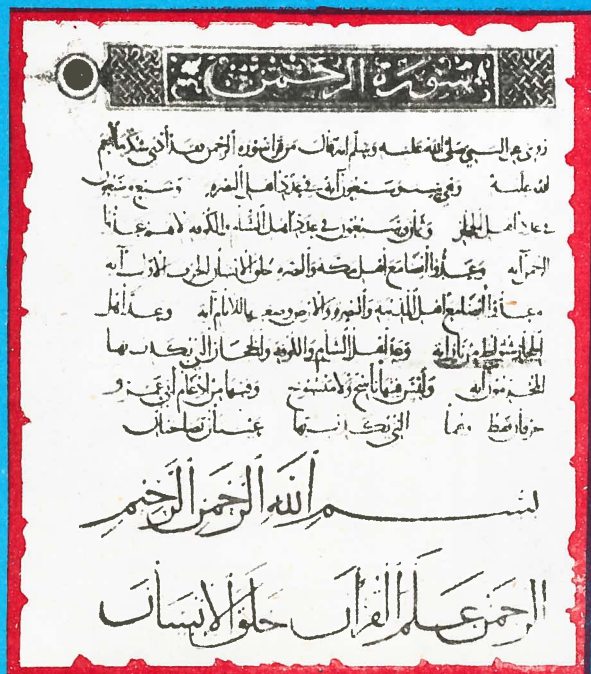 سورة الرحمن
روى عن النبي صلى الله عليه وسلم انه قال من قرا سورة الرحمن فقد أدى شكر ما أنعم
الله عليه وهي ست وسبعون آية في عدد اهل البصره وسبع وسبعون
في عدد اهل الحجاز وثمان وسبعون في عدد اهل الشام والكوفه لانهم عدوا
الرحمن آيه وعدوا أيضا مع اهل مكه والبصره خلق الانسان الحرف الاول آيه
وعدوا أيضا مع اهل المدينه والبصره والارض وضعها للانام آيه وعد اهل
الحجاز شواظ من نار آيه وعد اهل الشام والكوفة والحجاز التي يكذب بها
المجرمون آيه وليس فيها ناسخ ولا منسوخ وفيها من ادغام أبي عمرو
حرفان فقط وهما التي يكذب بها عينان نضاختان
بسم الله الرحمن الرحيم
الرحمن علم القرآن خلق الإنسان